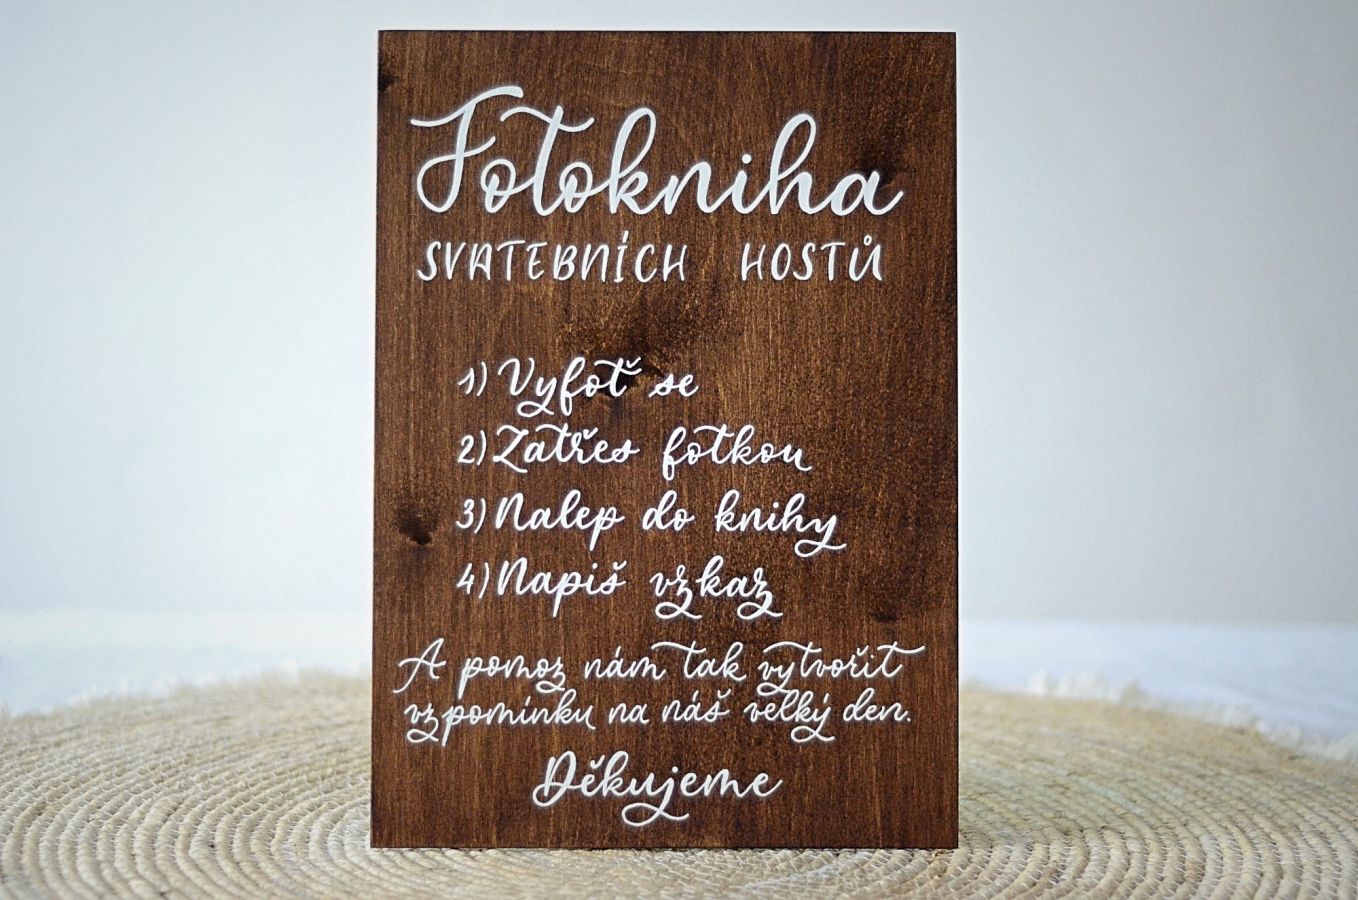 Fotokniha
SVATEBNÍCH HOSTŮ
1) Vyfoť se
2) Zatřes fotkou
3) Nalep do knihy
4) Napiš vzkaz
A pomoz nám tak vytvořit
vzpomínku na náš velký den.
Děkujeme